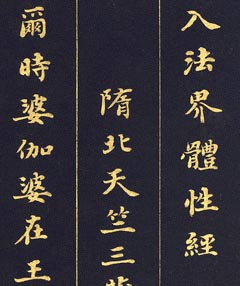 入法界體性經
隋北天竺三
爾時婆伽婆在王